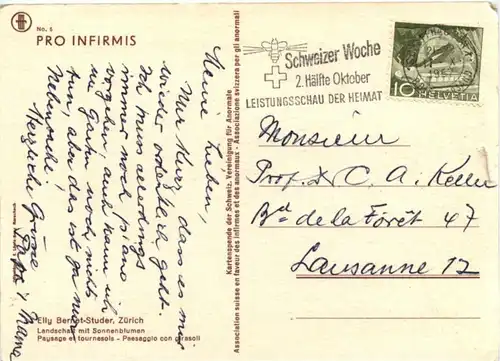 No. 5
PRO INFIRMIS
Meine Lieben,
Nur kurz, dass es mir
wieder ordentlich geht.
Ich muss allerdings
immer noch piano
vorgehen, auch kann ich
im Gahn noch nichts
tun, aber das ist ja nur
Nebensache.
Herzliche Grüsse
Papa & Mama
Elly Bernet-Studer, Zürich
Landschaft mit Sonnenblumen
Paysage et tournesols - Paesaggio con girasoli
Kartenspende der Schweiz. Vereinigung für Anormale
Association suisse en faveur des infirmes et des anormaux - Associazione svizzera per gli anormali
Schweizer Woche
2. Hälfte Oktober
LEISTUNGSSCHAU DER HEIMAT
10 HELVETIA
Monsieur
Prof. Dr C. A. Keller
Bd de la Forêt 47
Lausanne 12